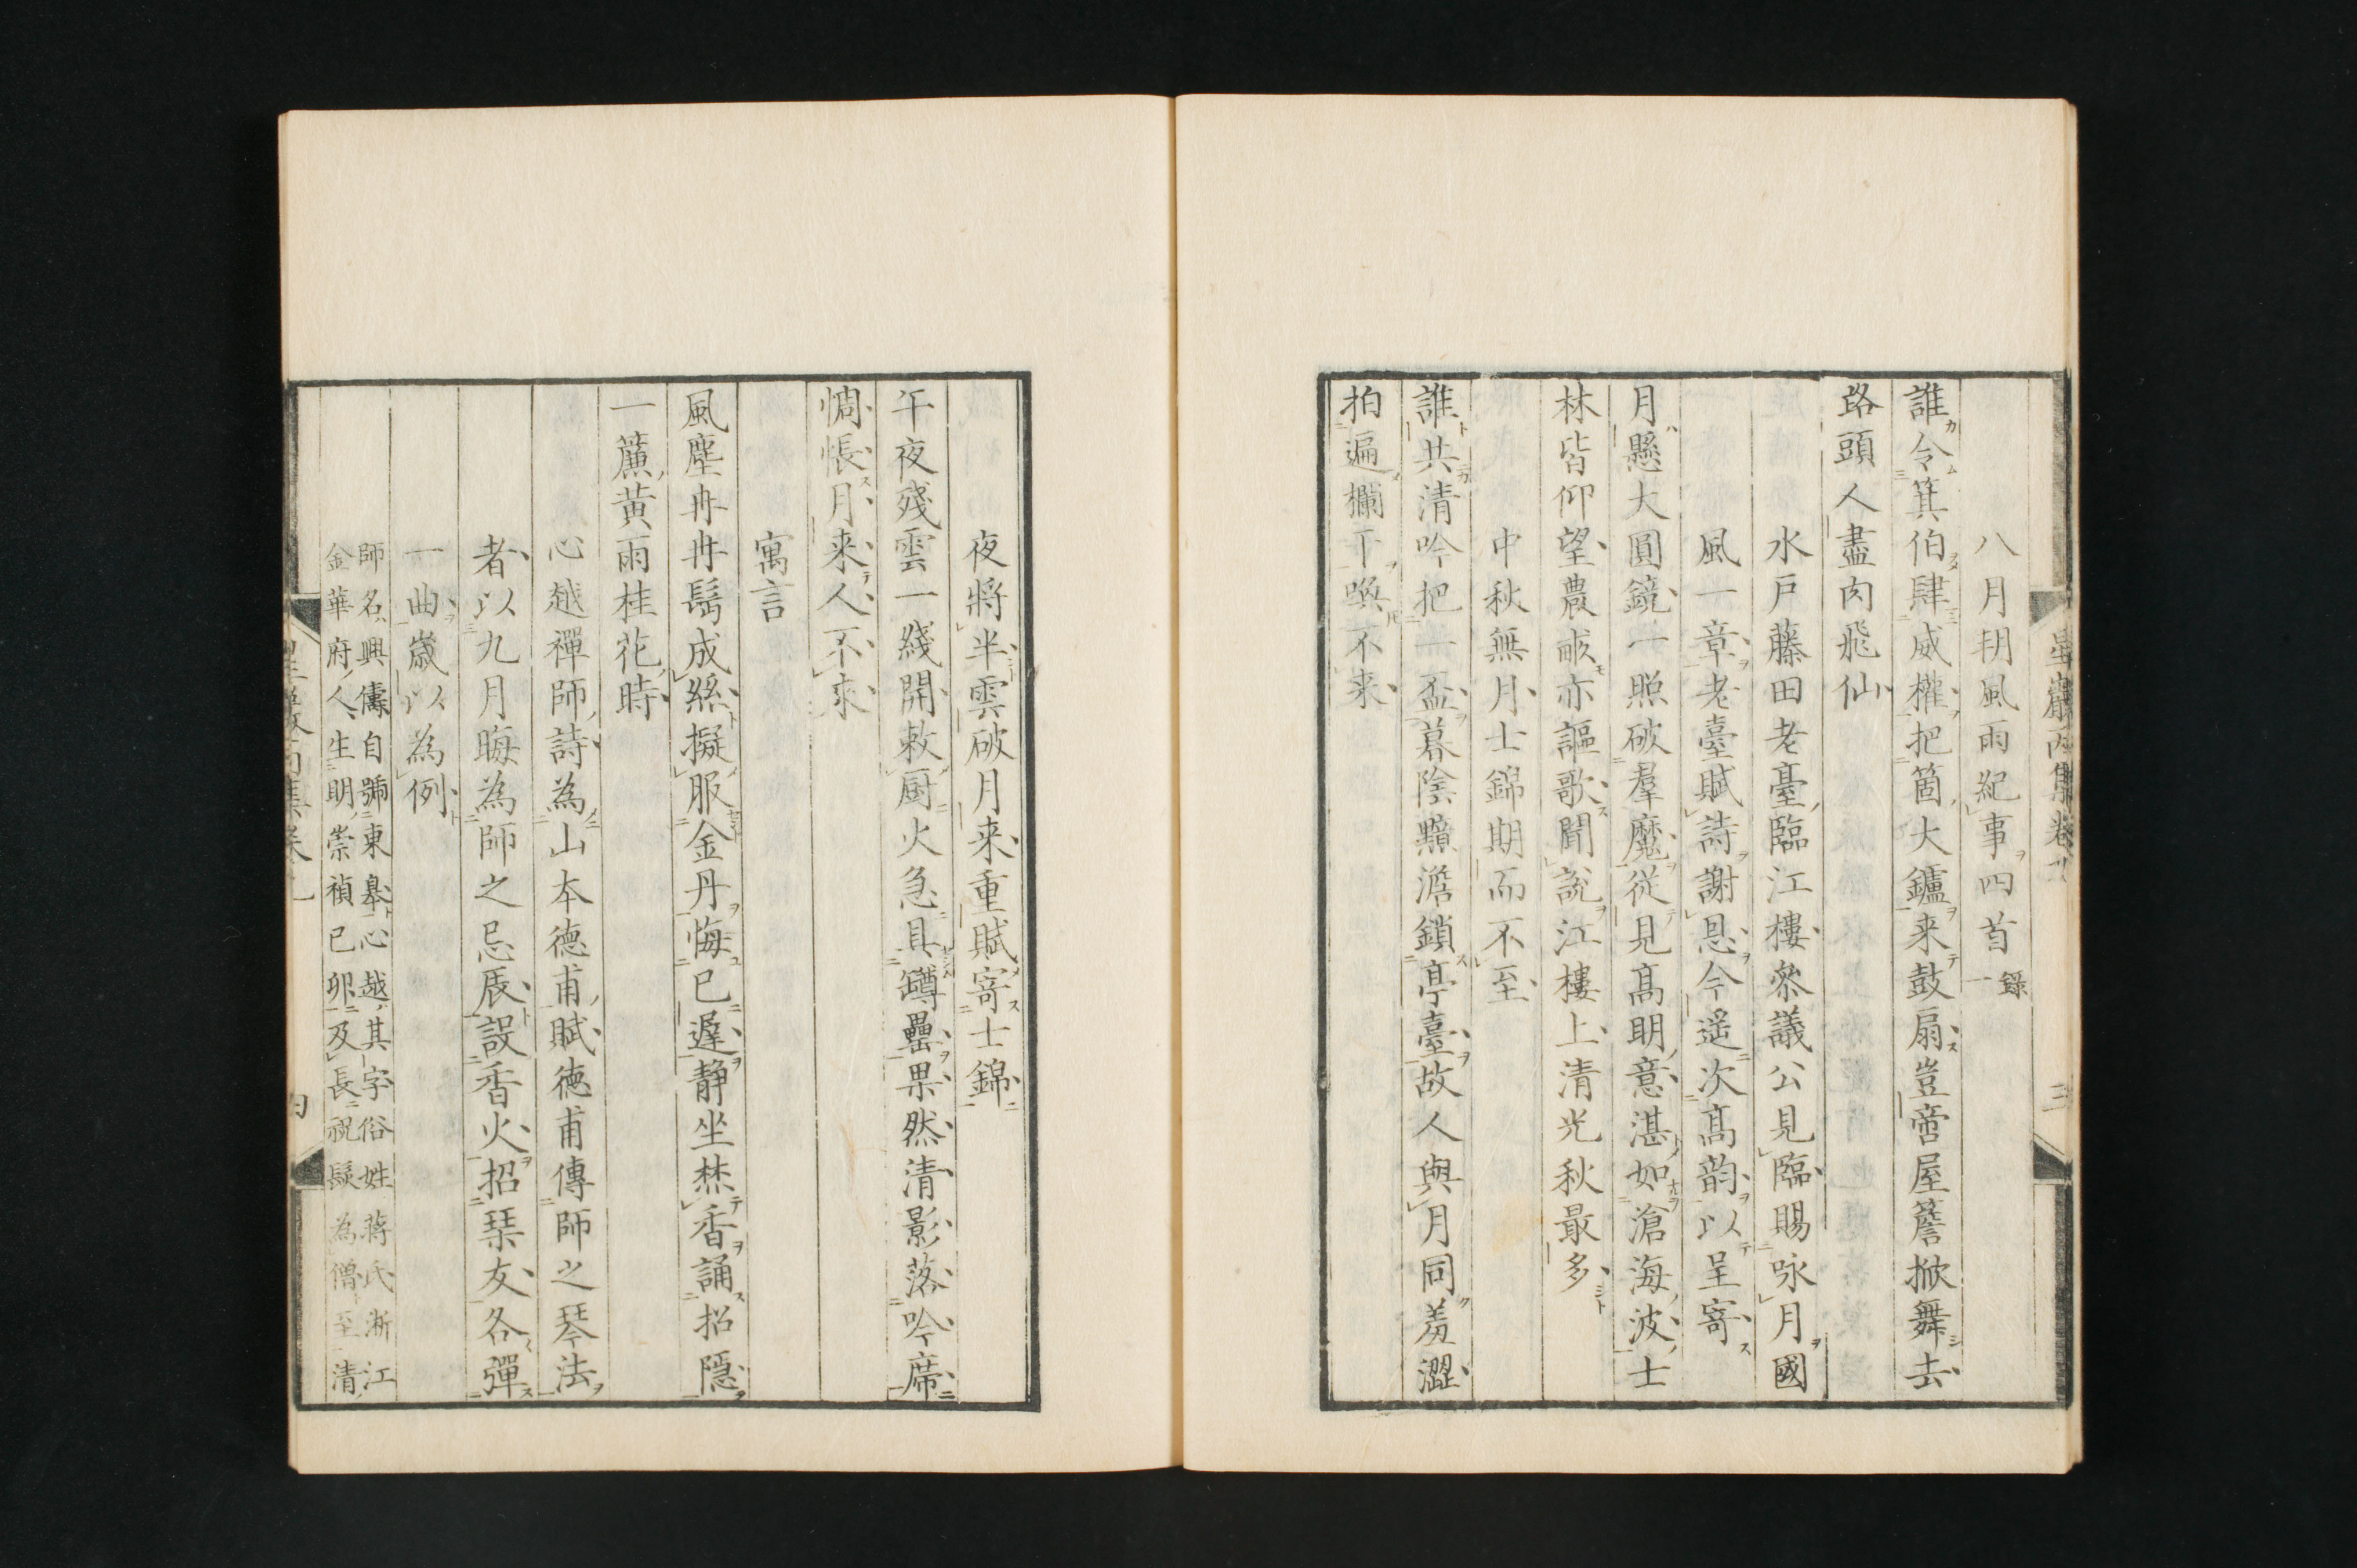 八月朔風雨紀事四首 錄一
誰令箕伯肆威權把箇大鑪来鼓扇豈啻屋簷掀舞去
路頭人盡肉飛仙
水戸藤田老臺臨江樓叅議公見臨賜咏月國
風一章老臺賦詩謝恩今遥次髙韵以呈寄
月懸大圓鏡一照破羣魔從見髙明意湛如滄海波士
林皆仰望農畝亦謳歌聞說江樓上清光秋最多
中秋無月士錦期而不至
誰共清吟把一盃暮陰黯澹鎖亭臺故人與月同羞澀
拍遍欄干喚不来
夜將半雲破月来重賦寄士錦
午夜殘雲一綫開敕厨火急具罇罍果然清影落吟席
惆悵月来人不來
寓言
風塵冉冉鬢成絲擬服金丹悔已遲静坐焚香誦招隱
一簾黄雨桂花時
心越禪師詩為山本德甫賦德甫傳師之琴法
者以九月晦為師之忌辰設香火招琹友各彈
一曲歲以為例
師名興儔自號東皋心越其字俗姓蔣氏淅江
金華府人生明崇禎已卯及長祝髮為僧至清
星巖丙集卷
三